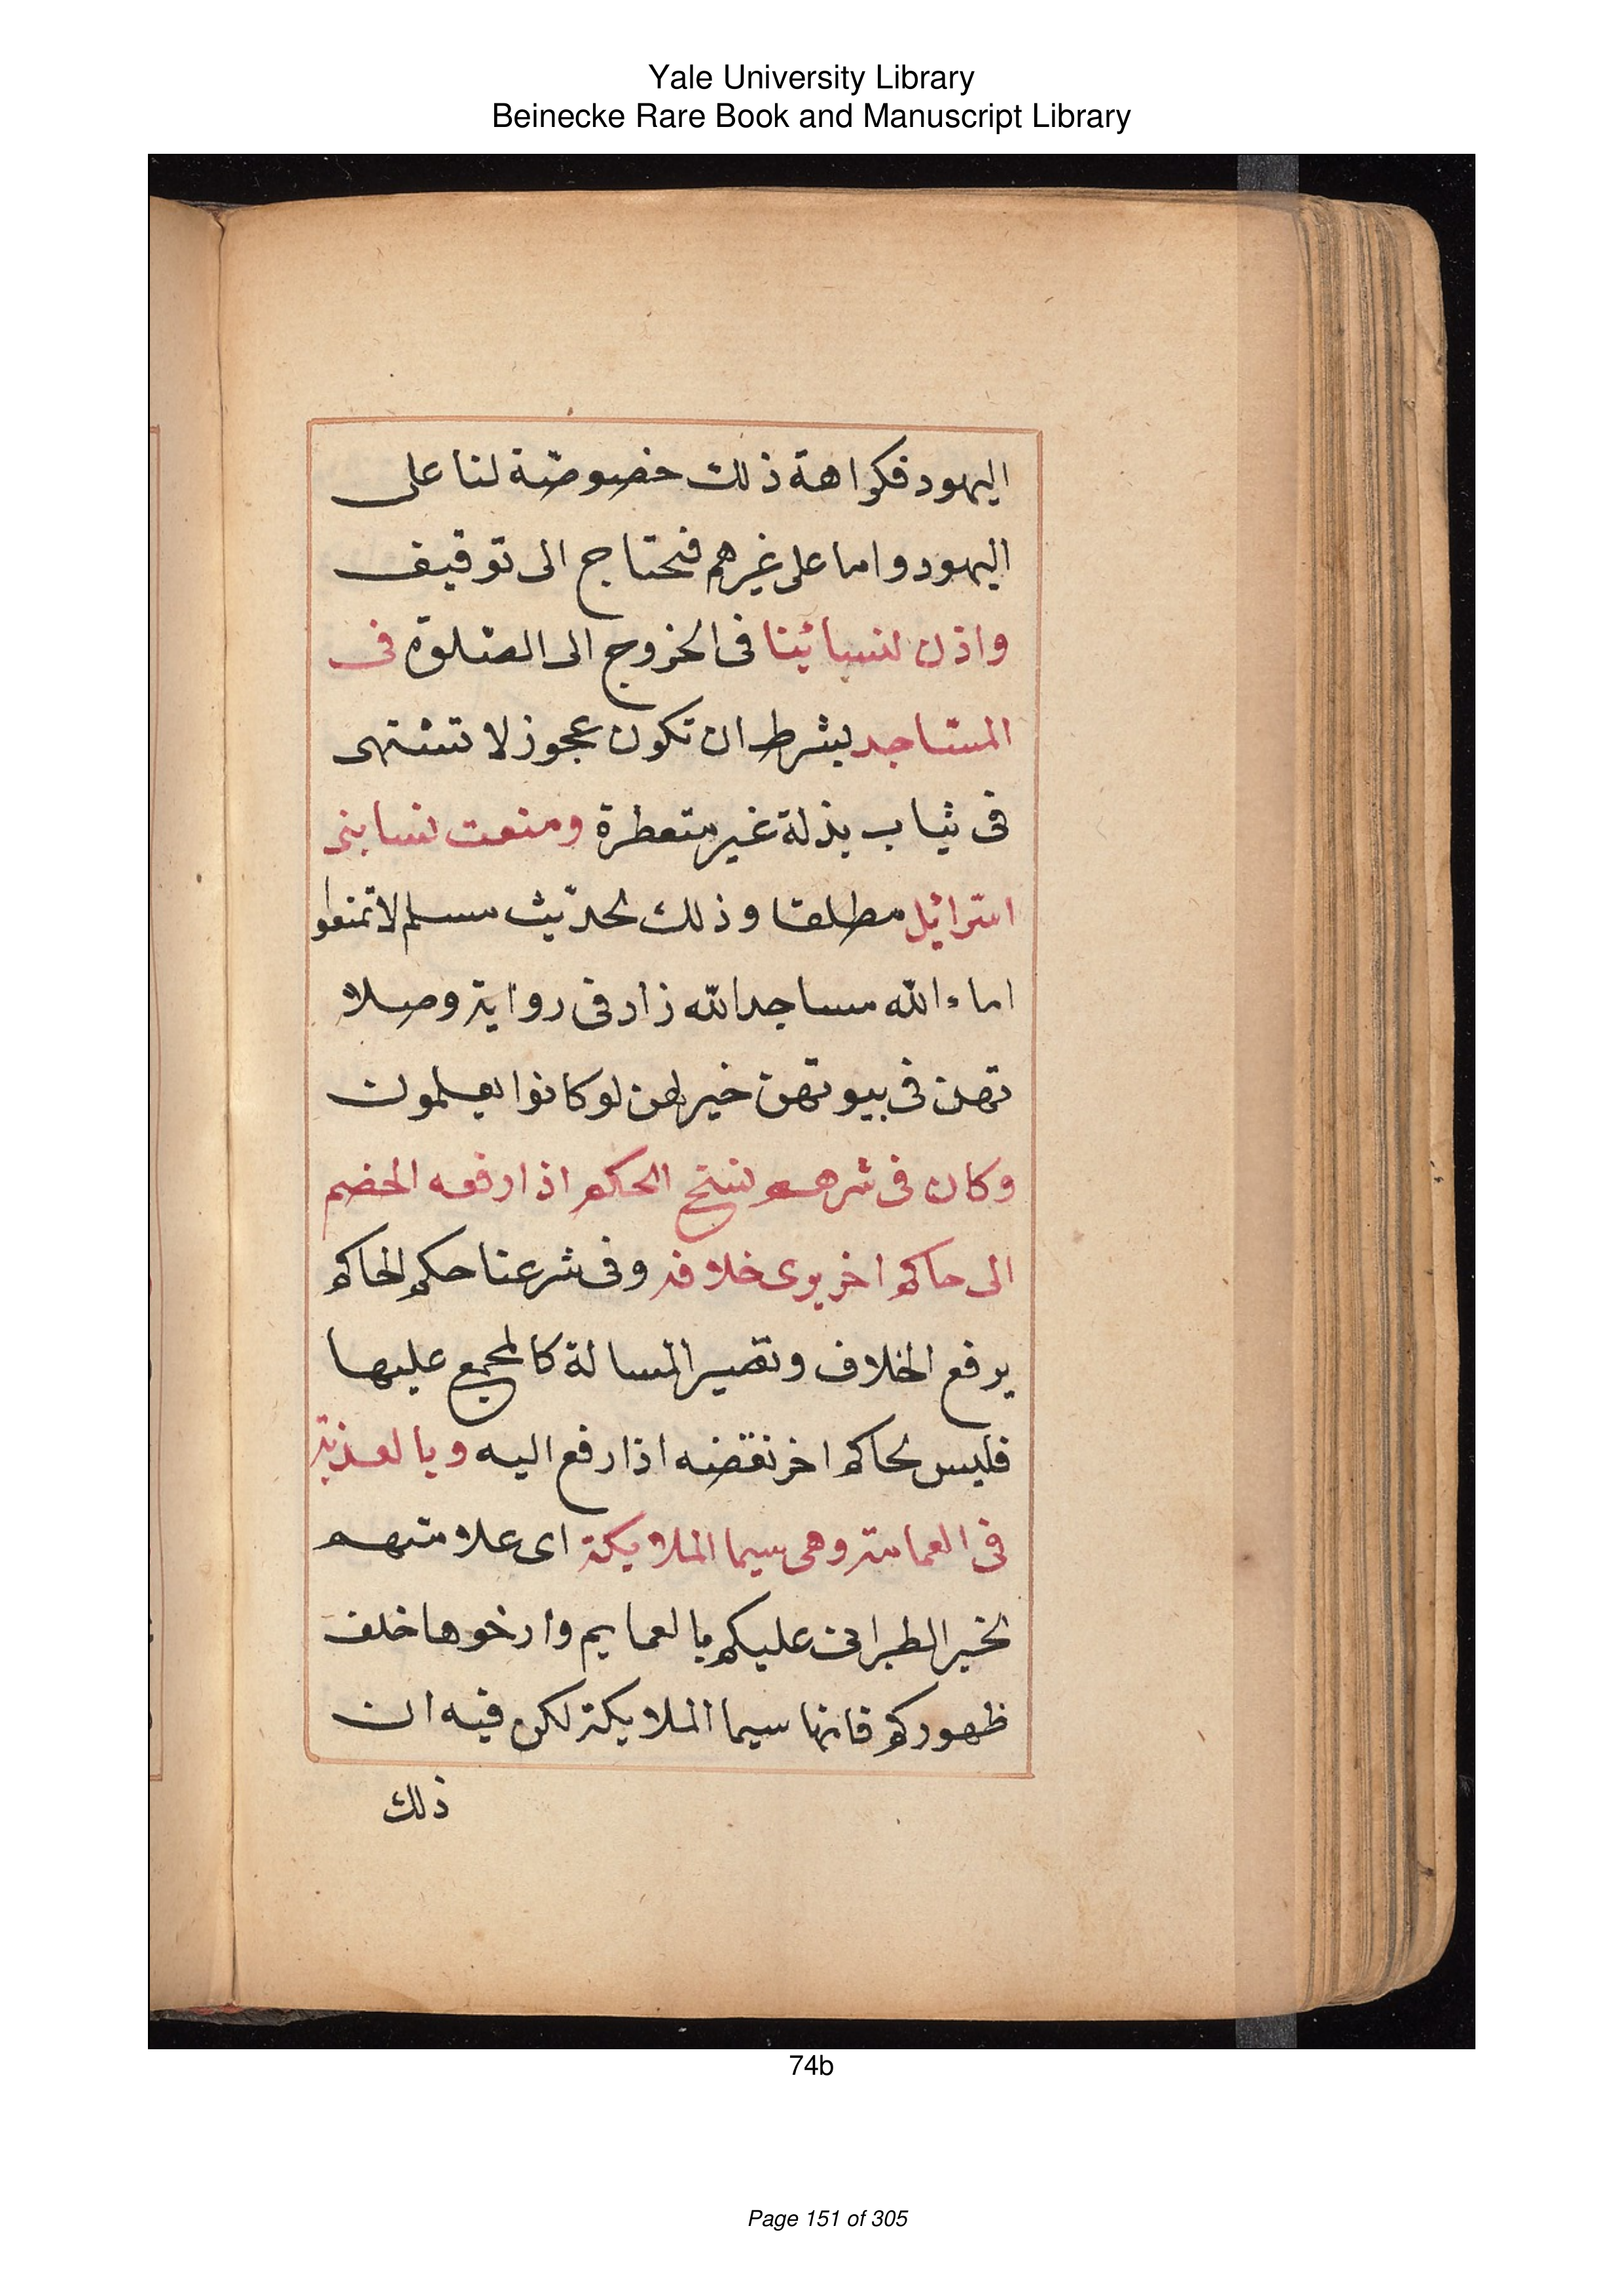 Yale University Library
Beinecke Rare Book and Manuscript Library
اليهود فكراهة ذلك خصوصّة لنا على
اليهود واما على غيرهم فتحتاج الى توقيف
واذن لنسائنا فى الخروج الى الصّلوة فى
المساجد بشرط ان تكون عجوز لا تشتهى
فى ثياب بذلة غير متعطرة ومنعت نسا بنى
اسرائيل مطلقا وذلك لحديث مسلم لا تمنعوا
اماء الله مساجد الله زاد فى رواية وصلا
تهن فى بيوتهن خير لهن لو كانوا يعلمون
وكان فى شرعهم نسخ الحكم اذا رفعه الخصم
الى حاكم اخر يرى خلافه وفى شرعنا حكم الحاكم
يرفع الخلاف وتصير المسالة كالمجمع عليها
فليس لحاكم اخر نقضه اذا رفع اليه وبالعذبة
فى العمامة وهى سيما الملايكة اى علامتهم
لخبر الطبرانى عليكم بالعمايم وارخوها خلف
ظهوركم فانها سيما الملايكة لكن فيه ان
ذلك
74b
Page 151 of 305